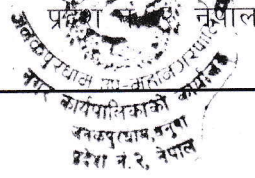 प्रदेश नं. २, नेपाल
जनकपुरधाम उप-महानगरपालिका
नगर कार्यपालिकाको कार्यालय
जनकपुरधाम, धनुषा
प्रदेश नं. २, नेपाल